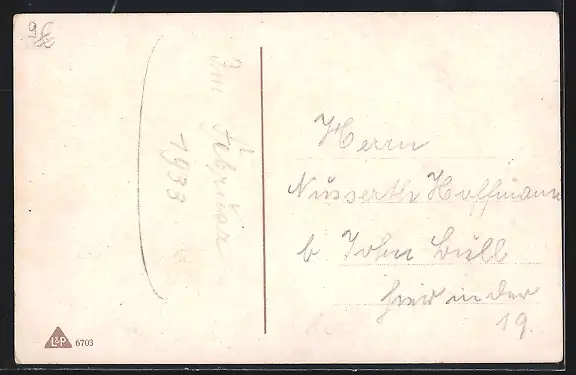 Im Februar
1933.
Herrn
Nusserth Hoffmann
b John Bull
hier in der
19.
L&P 6703